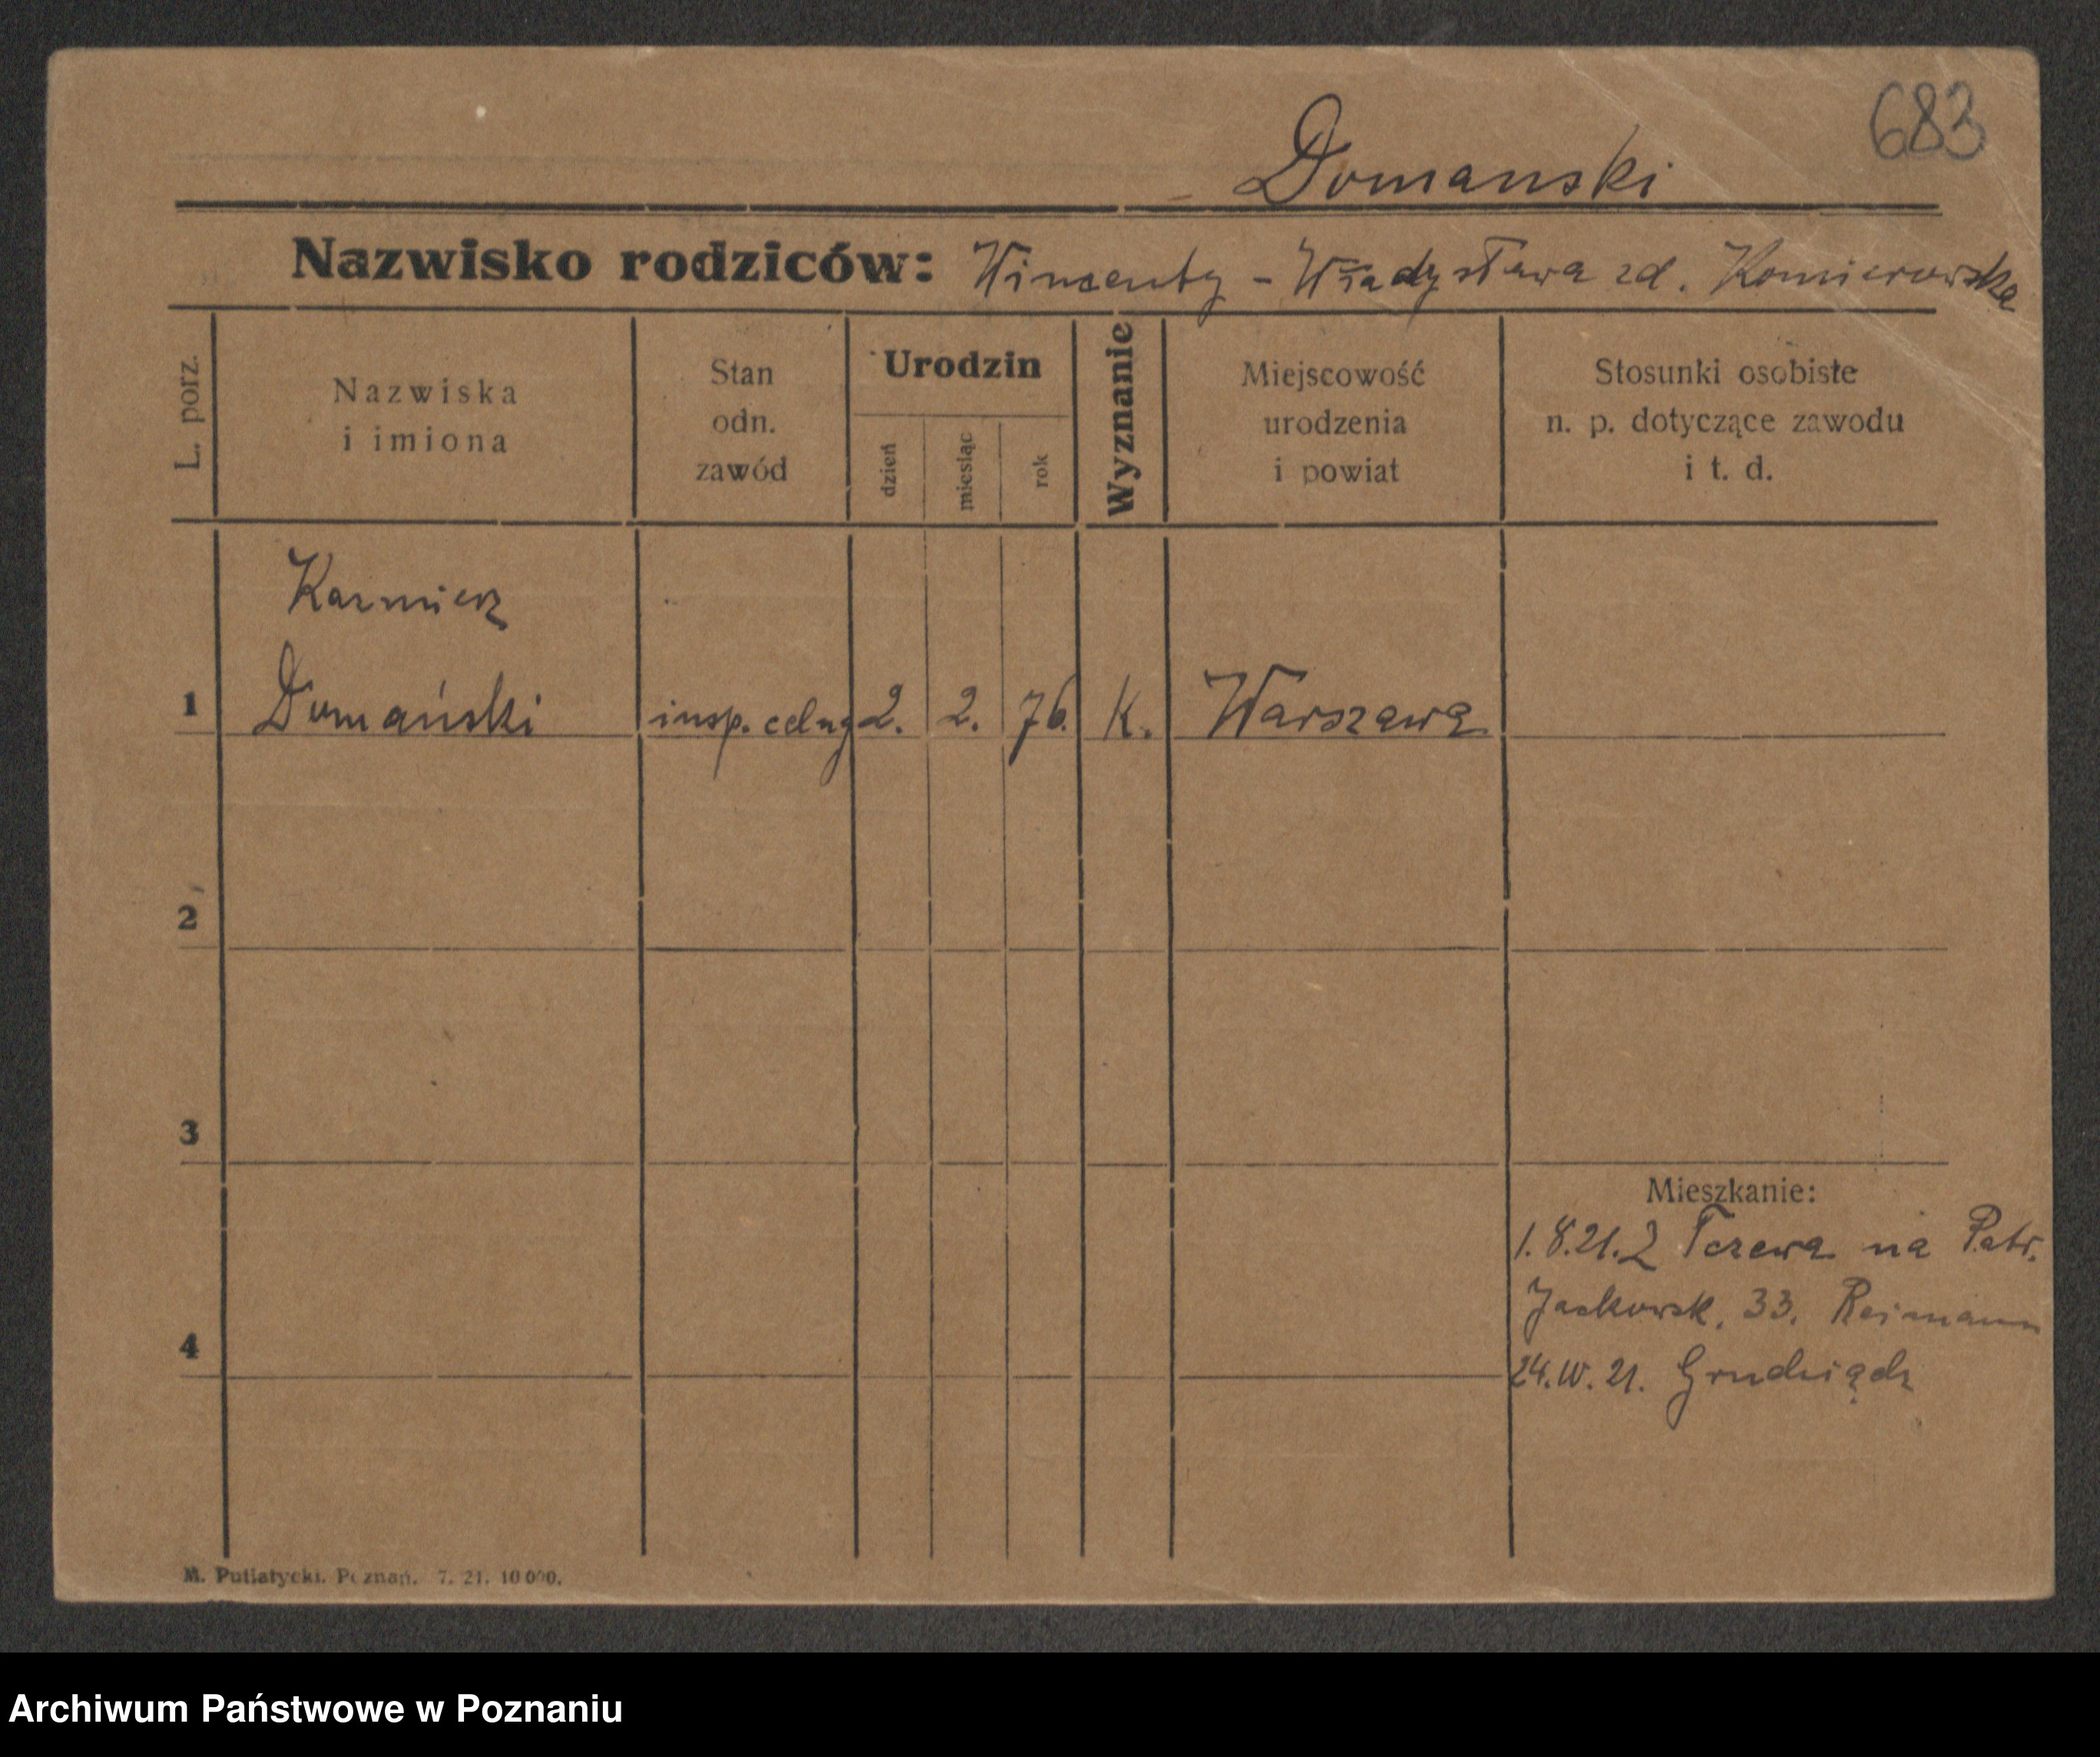 683
Domanski
Nazwisko rodziców: Wincenty - Władysława zd. Komierowska
L. porz.
Nazwiska
i imiona
Stan
odn.
zawód
Urodzin
dzień
miesiąc
rok
Wyznanie
Miejscowość
urodzenia
i powiat
Stosunki osobiste
n. p. dotyczące zawodu
i t. d.
Kazmierz
1 Domański insp. celny 2. 2. 76. K. Warszawa
2
3
Mieszkanie:
1.8.21. Z Tczewa na Patr.
Jackowsk. 33. Reimann
4
24.IV.21. Grudziądz
M. Putiatycki. Poznań. 7. 21. 10000.
Archiwum Państwowe w Poznaniu